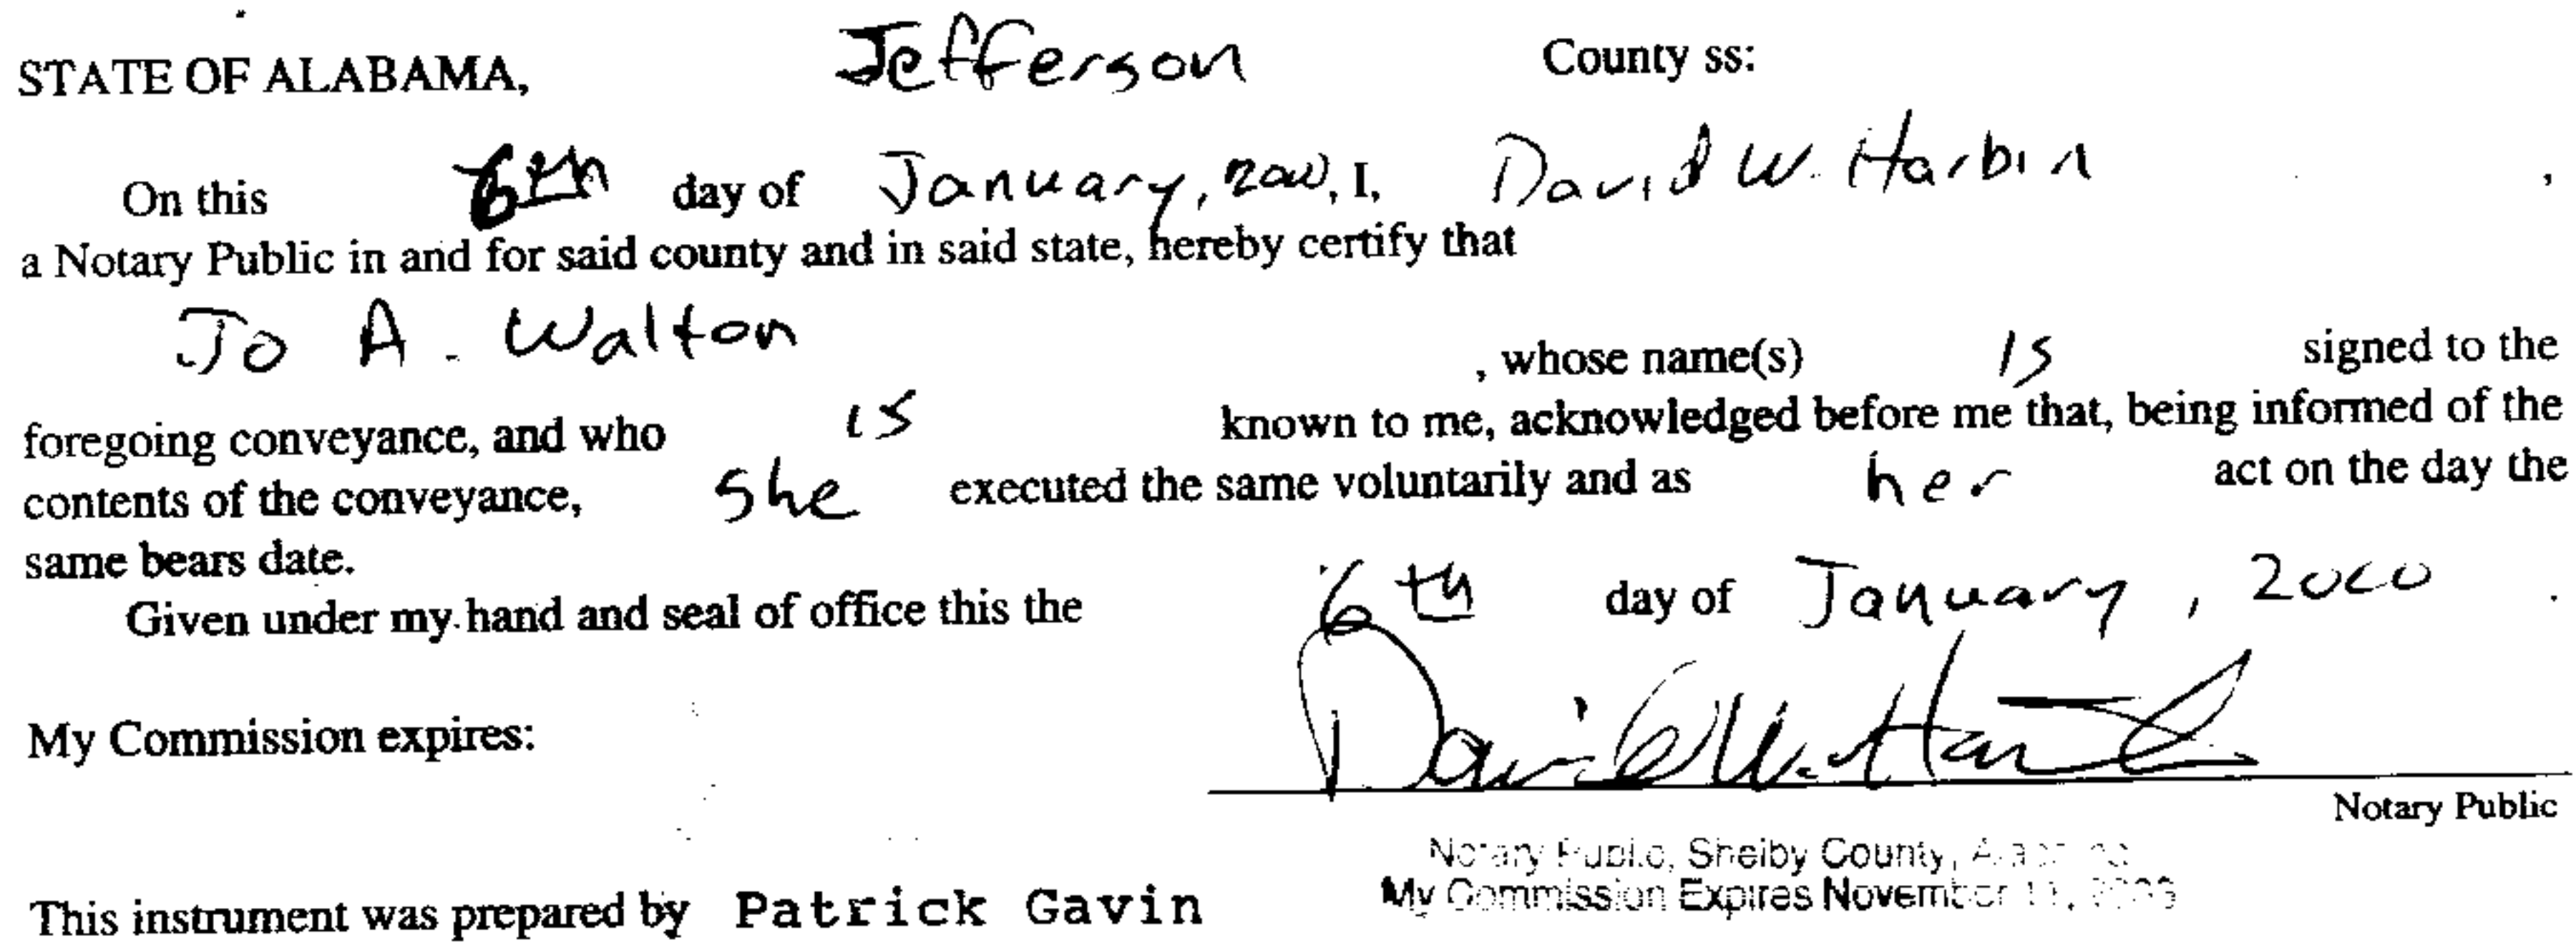 STATE OF ALABAMA, Jefferson County ss:
On this 6th day of January, 2000, I, David W. Harbin ,
a Notary Public in and for said county and in said state, hereby certify that
Jo A. Walton , whose name(s) is signed to the
foregoing conveyance, and who is known to me, acknowledged before me that, being informed of the
contents of the conveyance, she executed the same voluntarily and as her act on the day the
same bears date.
Given under my hand and seal of office this the 6th day of January, 2000 .
David W. Harbin
My Commission expires:
Notary Public
Notary Public, Shelby County, Alabama
My Commission Expires November 11,
This instrument was prepared by Patrick Gavin